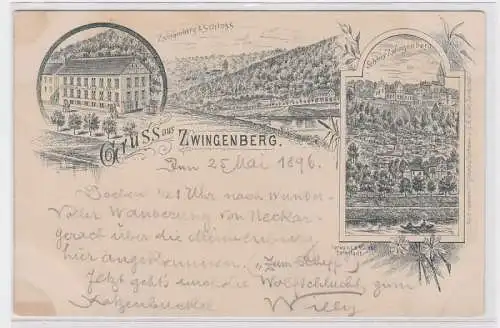 Zwingenberg & Schloss
Schloss Zwingenberg
Gruss aus
ZWINGENBERG.
Den 25 Mai 1896.
Soeben 1 Uhr nach wunder-
voller Wanderung von Neckar-
gerach über die
hier angekommen. „Zum Schiff"
Jetzt geht's durch die Wolfschlucht, zum
Katzenbuckel
Willy